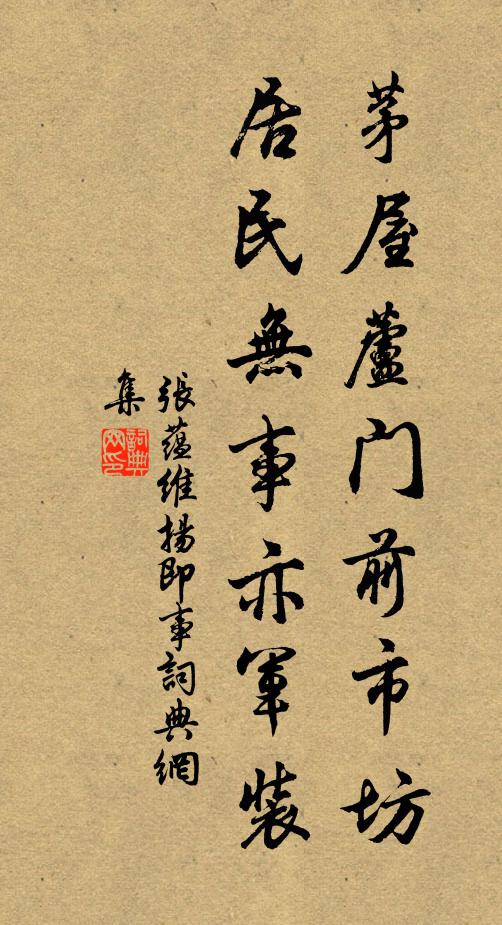 茅屋蘆門前市坊
居民無事亦軍裝
張蘊維揚即事詞典網
集
詞典網印